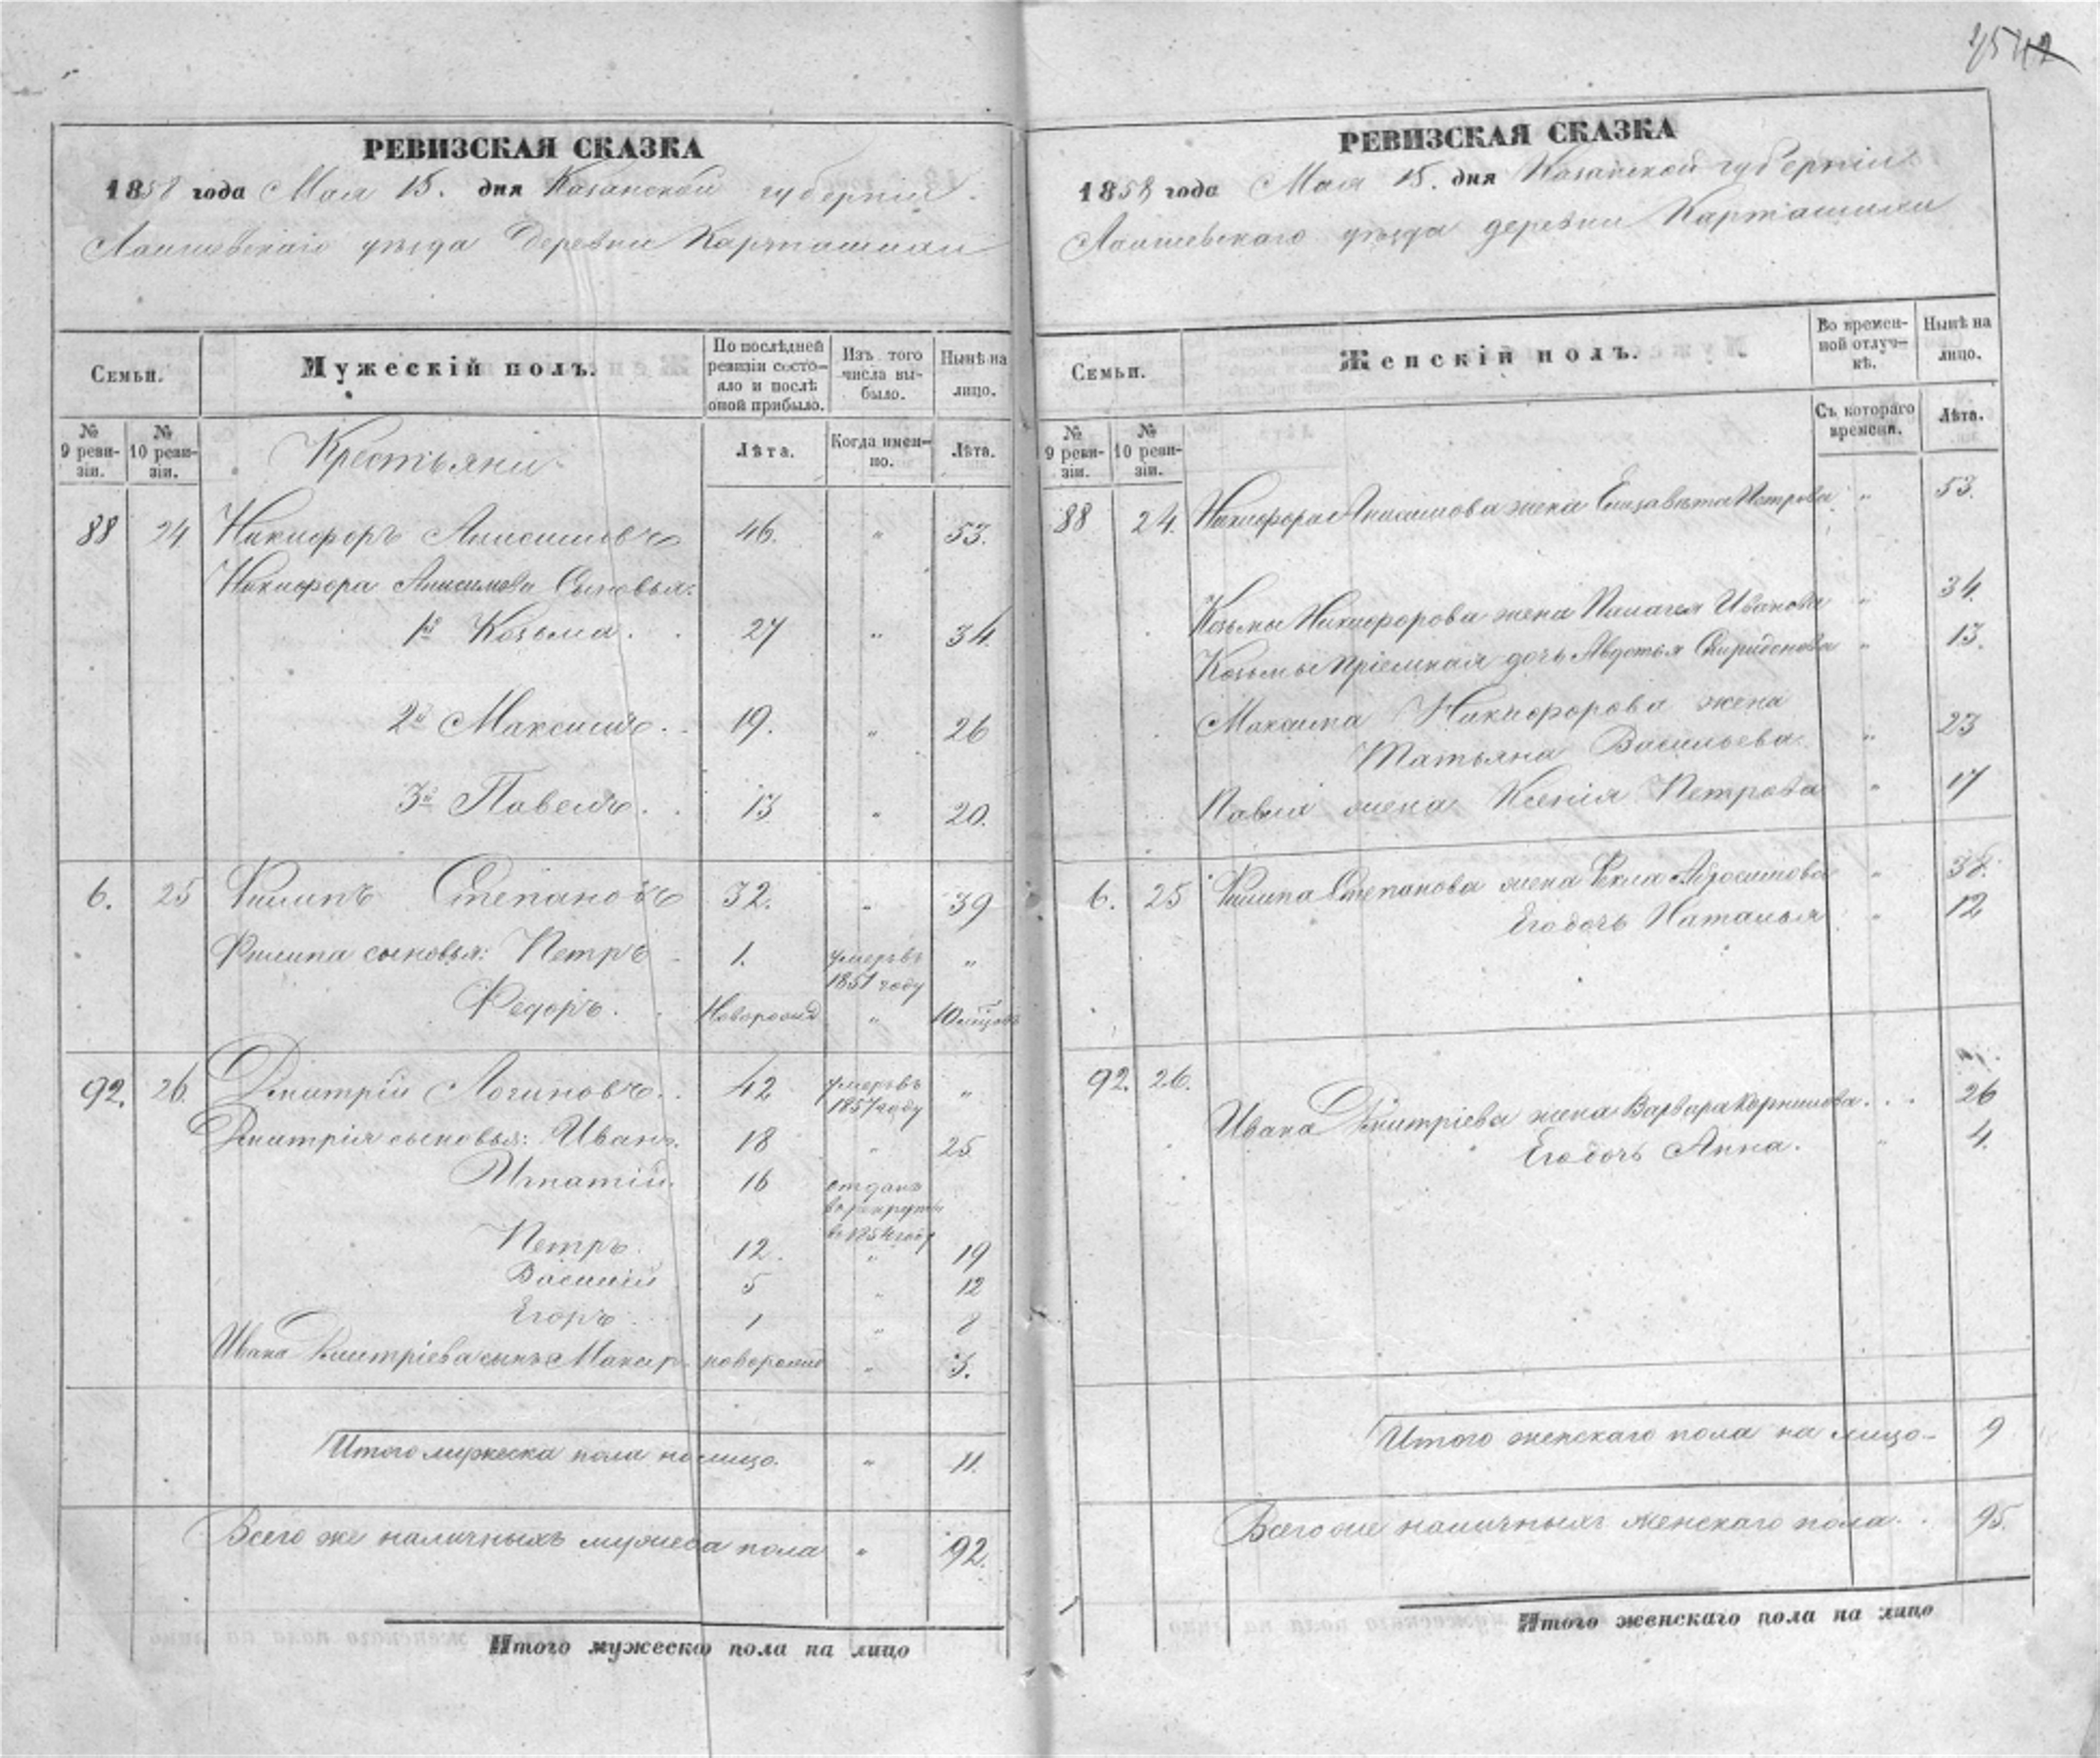 РЕВИЗСКАЯ СКАЗКА
1858 года Мая 15. дня Казанской губернiи
Лаишевскаго уѣзда деревни Карташихи
Семьи.
Мужескiй полъ.
По послѣдней ревизiи состояло и послѣ оной прибыло.
Изъ того числа выбыло.
Нынѣ на лицо.
№ 9 ревизiи.
№ 10 ревизiи.
Лѣта.
Когда именно.
Лѣта.
Крестьяни
88 24 Никифоръ Анисимовъ 46. " 53.
Никифора Анисимова Сыновья:
1й Козьма. 27 " 34.
2й Максимъ. 19. " 26
3й Павелъ. 13 " 20.
6. 25 Филипъ Степановъ 32. " 39
Филипа сыновья: Петръ 1. умеръ въ 1851 году "
Федоръ. Новорожд "
92. 26. Дмитрiй Логиновъ. 42 умеръ въ 1857 году "
Дмитрiя сыновья: Иванъ. 18 " 25
Игнатiй. 16 отданъ в рекруты в 1854 году
Петръ. 12. " 19
Василiй 5 " 12
Егоръ. 1 " 8
Ивана Дмитрiева сынъ Макар новорожд " 3.
Итого мужеска пола на лицо. " 11.
Всего же наличныхъ мужеска пола " 92.
Итого мужеска пола на лицо
РЕВИЗСКАЯ СКАЗКА
1858 года Мая 15. дня Казанской губернiи
Лаишевскаго уѣзда деревни Карташихи
Семьи.
Женскiй полъ.
Во временной отлучкѣ.
Нынѣ на лицо.
№ 9 ревизiи.
№ 10 ревизiи.
Съ котораго времени.
Лѣта.
88 24. Никифора Анисимова жена Елизавѣта Петрова " 53.
Козьмы Никифорова жена Палагея Иванова " 34.
Козьмы прiемная дочь Авдотья Спиридонова " 13.
Максима Никифорова жена
Татьяна Васильева. " 23
Павла жена Ксенiя Петрова " 17
6. 25 Филипа Степанова жена Фекла Абросимова " 38.
Его дочь Наталья " 12
92. 26.
Ивана Дмитрiева жена Варвара Корнилова. 26
Его дочь Анна. " 4.
Итого женскаго пола на лицо 9
Всего же наличныхъ женскаго пола. 95.
Итого женскаго пола на лицо